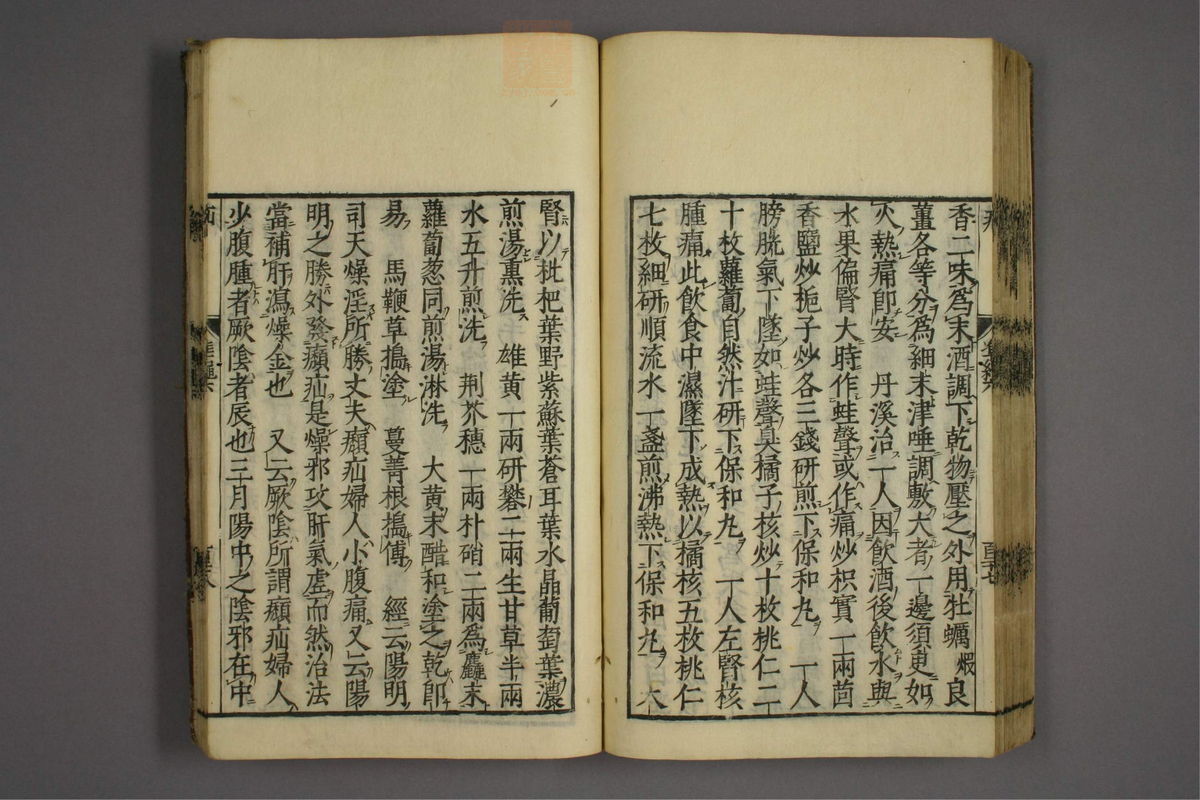 香二味爲末酒調下乾物壓之外用牡蠣煅良
薑各等分爲細末津唾調敷大者一邊須臾如
火熱痛卽安　丹溪治一人因飮酒後飮水與
水果偏腎大時作蛙聲或作痛炒枳實一兩茴
香鹽炒梔子炒各三錢研煎下保和丸　一人
膀胱氣下墜如蛙聲臭橘子核炒十枚桃仁二
十枚蘿蔔自然汁研下保和丸　一人左腎核
腫痛此飮食中濕墜下成熱以橘核五枚桃仁
七枚細研順流水一盞煎沸熱下保和丸　大
腎以枇杷葉野紫蘇葉蒼耳葉水晶葡萄葉濃
煎湯熏洗　雄黃一兩研礬二兩生甘草半兩
水五升煎洗　荆芥穗一兩朴硝二兩爲麤末
蘿蔔葱同煎湯淋洗　大黃末醋和塗之乾卽
易　馬鞭草搗塗　蔓菁根搗傅　經云陽明
司天燥淫所勝丈夫㿗疝婦人小腹痛又云陽
明之勝外發㿗疝是燥邪攻肝氣虛而然治法
當補肝瀉燥金也　又云厥陰所謂㿗疝婦人
少腹腫者厥陰者辰也三月陽中之陰邪在中